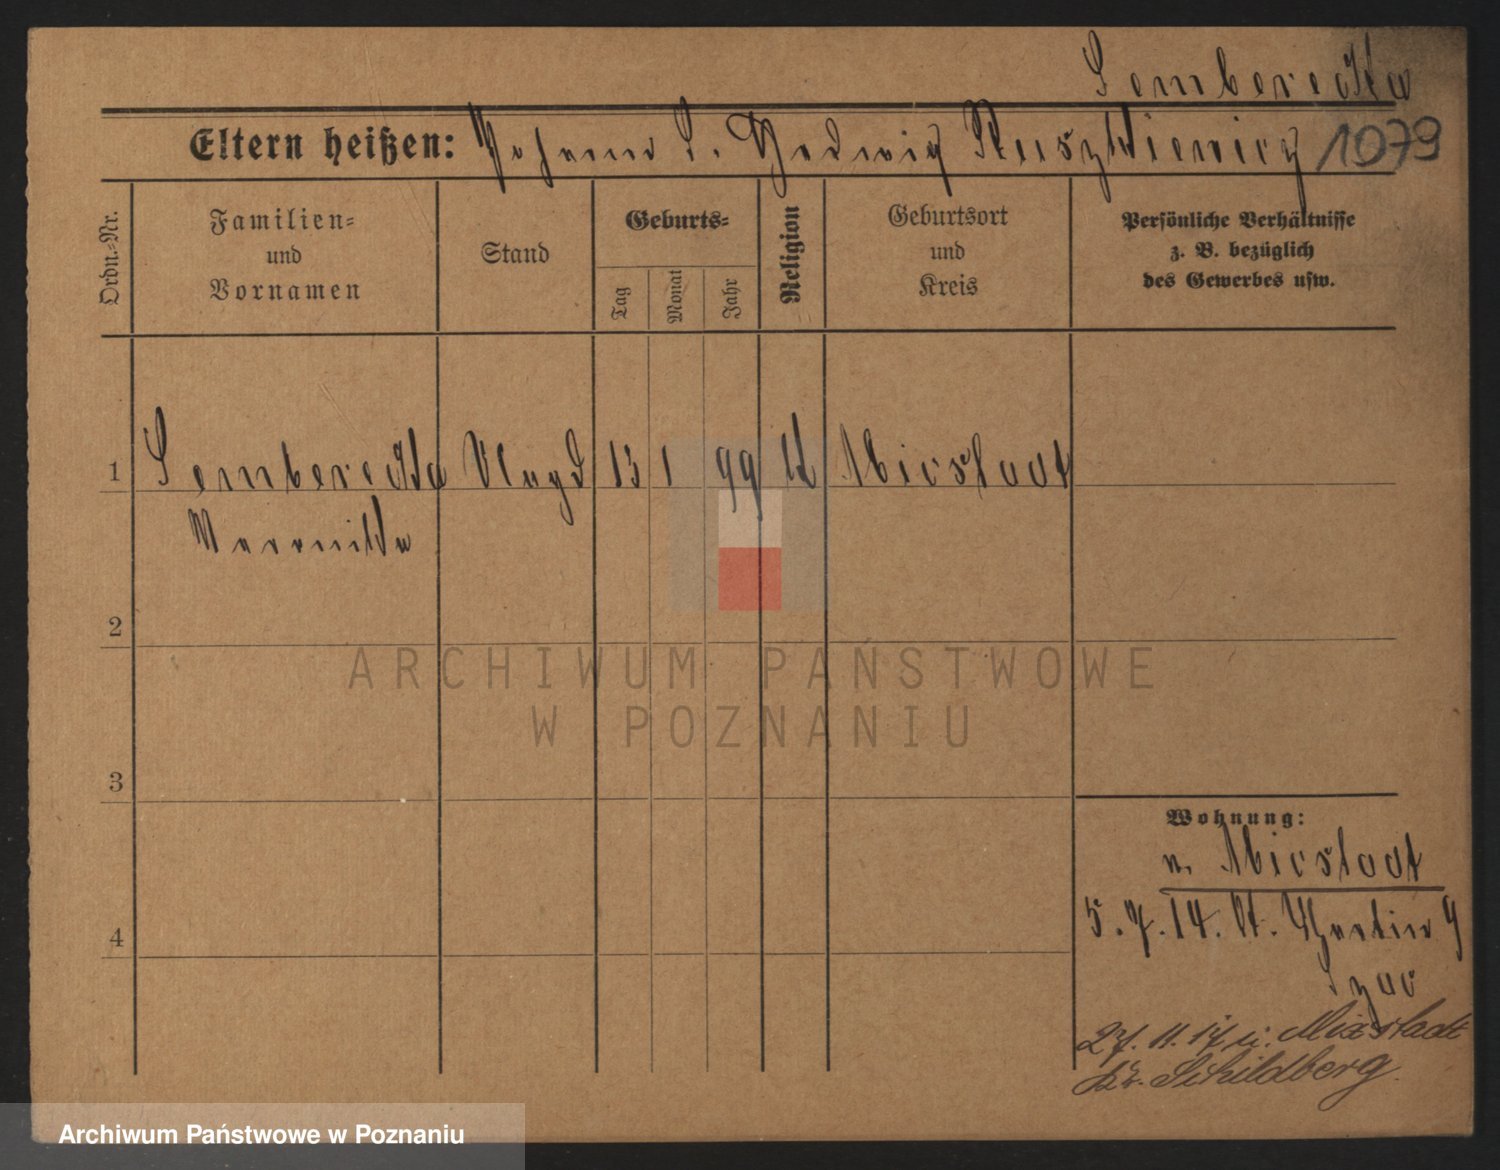 Semberecka
Eltern heißen: Johann S. Hedwig Ruszkiewicz 1079
Ordn.-Nr.
Familien-
und
Vornamen
Stand
Geburts-
Tag
Monat
Jahr
Religion
Geburtsort
und
Kreis
Persönliche Verhältnisse
z. B. bezüglich
des Gewerbes usw.
1 Semberecka Magd 13 1 99 k Mixstadt
Veronika
2
ARCHIWUM PAŃSTWOWE
W POZNANIU
3
Wohnung:
v. Mixstadt
5.7.14. St. Martin 9
4
27. 11. 17 n. Mixstadt
Kr. Schildberg
Archiwum Państwowe w Poznaniu